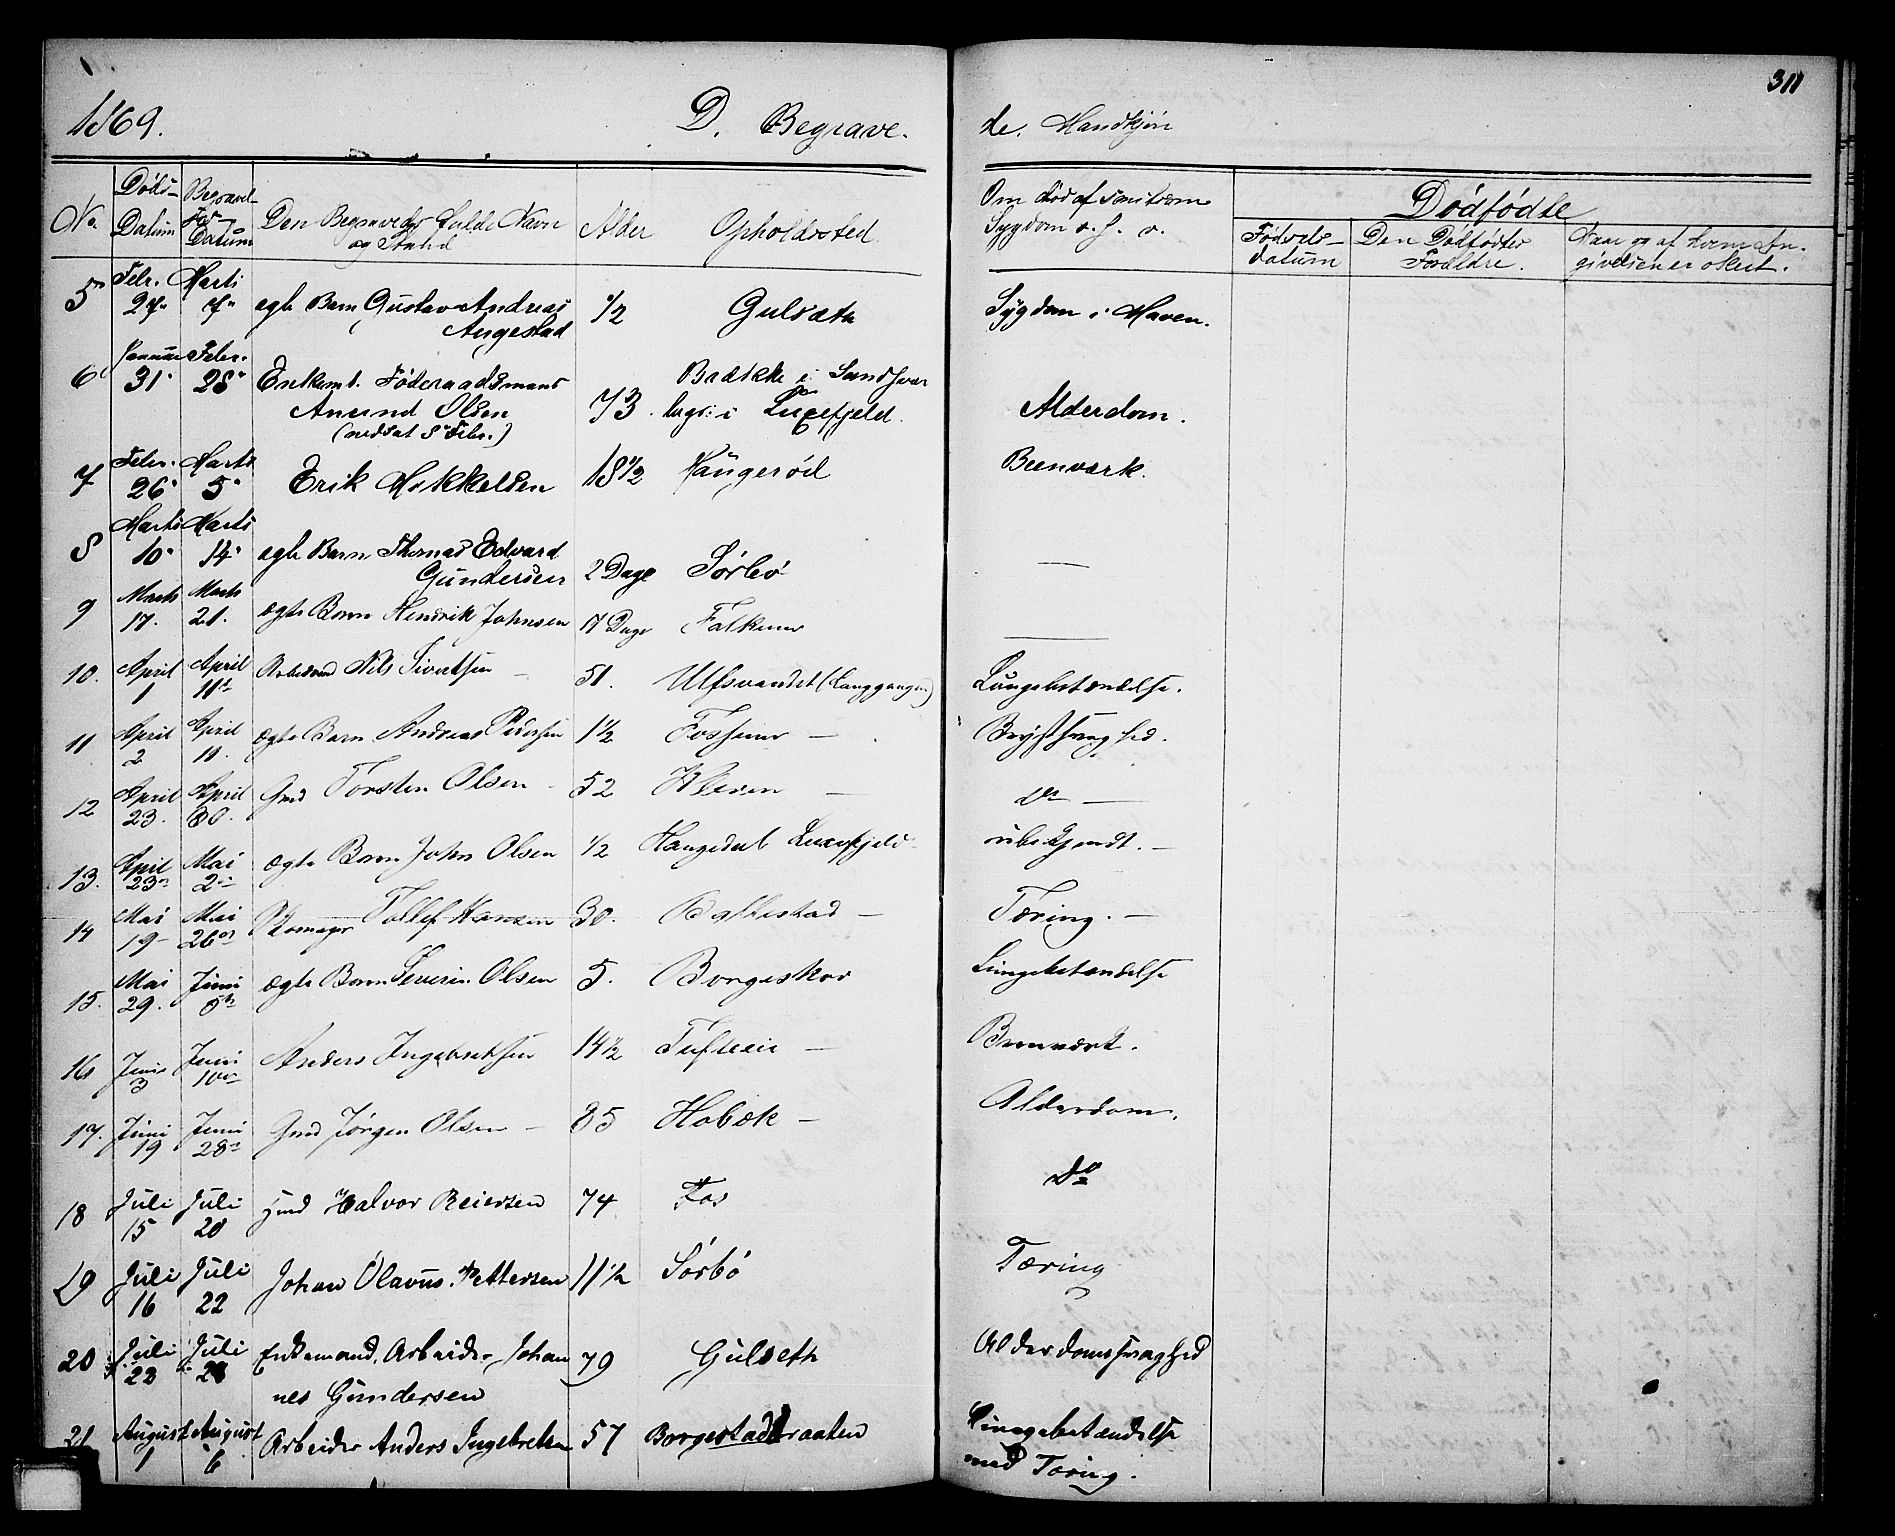 311
1869.
D. Begrave-
de. Mandkjön
No.
Döds-
Datum
Begravel-
ses-
Datum
Den Begravedes fulde Navn
og Stand
Alder
Opholdssted.
Om död af
Sygdom o. s. v.
Dödfödte
Födsels-
datum
Den Dödfödtes
Forældre.
Naar og af hvem An-
givelsen er skeet.
5 Febr. 27 Marts 7 ægte Barn Gustav Andreas 1/2 Gulsæth Sygdom i Maven.
Augestad
6 Januar 31 Febr. 28 Enkemd. Föderaadsmand Bakke i Sandsvær
Anund Olsen 73. logr: i Luxefjeld. Alderdom.
(nedsat 8 Febr.)
7 Febr. 26 Marts 5 Erik Mikkelsen 18 1/2 Haugeröd Beenværk.
8 Marts 10 Marts 14 ægte Barn Thomas Edvard
Gundersen 2 Dage Sörbö —
9 Marts 17. Marts 21. ægte Barn Hendrik Johnsen 17 Dage Falkum —
10. April 1 April 11te Arbeidsmd Nils Sivertsen 51. Ulfsvandet (Langgangen) Lungebetændelse.
11 April 2 April 11. ægte Barn Andreas Pedersen 1 1/2 Fossum — Brystsvaghed.
12 April 23. April 30. Gmd Torsten Olsen 52 Kleven — do —
13. April 23 Mai 2 ægte Barn John Olsen 1/2 Haugedal Luxefjeld ubekjendt. —
14 Mai 19 Mai 26 Skomager Tollef Hansen 30. Ballestad — Tæring. —
15. Mai 29. Juni 5te ægte Barn Severin Olsen 5. Borgeskov Lungebetændelse
16 Juni 3 Juni 10 Anders Ingebretsen 14 1/2 Tufteeie — Beenværk.
17. Juni 19 Juni 28 Gmd Jörgen Olsen — 85 Hobæk — Alderdom.
18 Juli 15 Juli 20 Gmd Halvor Reiersen 74 Fos Do
19 Juli 16 Juli 22 Johan Olavus Pettersen 11 1/2 Sörbö Tæring
20 Juli 23 Juli 28 Enkemand, Arbeider Johan 79 Gulseth Alderdomssvaghed
nes Gundersen
21 August 1 August 6 Arbeider Anders Ingebretsen 57 Borgestadbraaten Lungebetændelse
med Tæring.